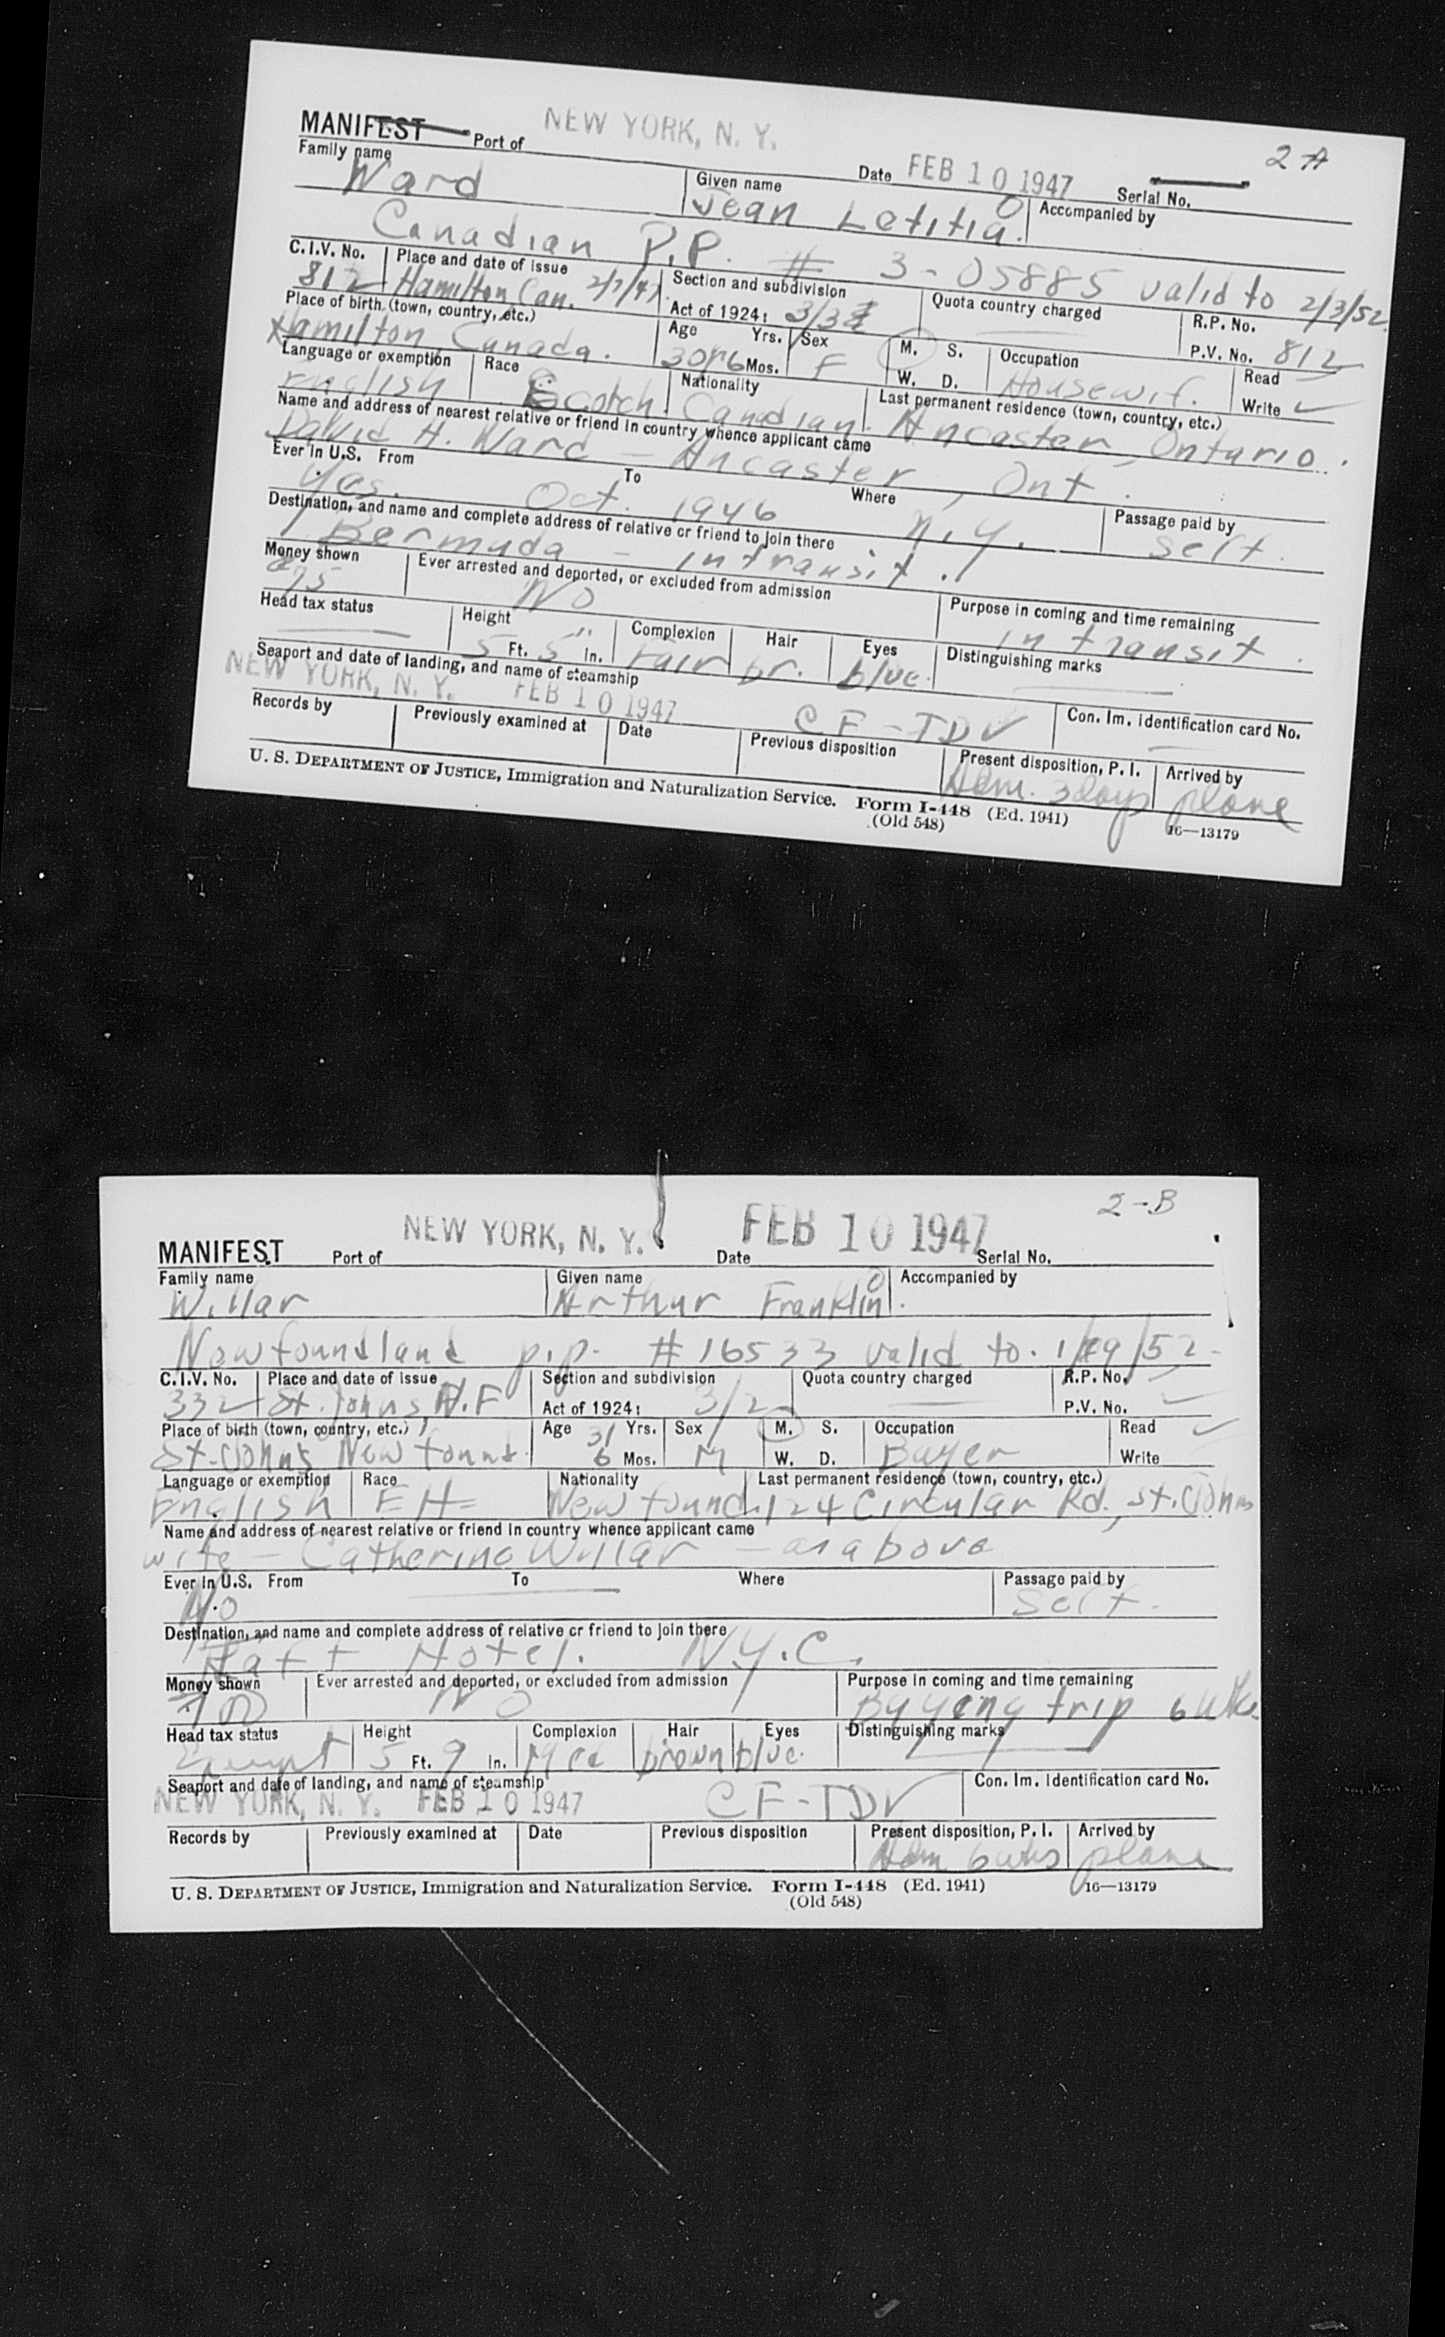 2 A
MANIFEST Port of NEW YORK, N. Y. Date FEB 10 1947 Serial No.
Family name Given name Accompanied by
Ward Jean Letitia.
Canadian P.P. # 3-05885 valid to 2/3/52
C.I.V. No. Place and date of issue Section and subdivision Quota country charged R.P. No.
812 Hamilton, Can. 2/7/47 Act of 1924: 3/3 P.V. No. 812
Place of birth (town, country, etc.) Age Yrs. Sex M. S. Occupation Read
Hamilton, Canada. 30 6 Mos. F W. D. Housewif. Write
Language or exemption Race Nationality Last permanent residence (town, country, etc.)
English Scotch. Canadian. Ancaster, Ontario.
Name and address of nearest relative or friend in country whence applicant came
David H. Ward - Ancaster, Ont.
Ever in U.S. From To Where Passage paid by
Yes. Oct. 1946 N.Y. Self.
Destination, and name and complete address of relative or friend to join there
Bermuda - in transit.
Money shown Ever arrested and deported, or excluded from admission Purpose in coming and time remaining
75 No in transit.
Head tax status Height Complexion Hair Eyes Distinguishing marks
5 Ft. 5 In. Fair br. blue.
Seaport and date of landing, and name of steamship Con. Im. identification card No.
NEW YORK, N. Y. FEB 10 1947 CF-TDV
Records by Previously examined at Date Previous disposition Present disposition, P. I. Arrived by
Adm. 3 days plane
U. S. DEPARTMENT OF JUSTICE, Immigration and Naturalization Service. Form I-448 (Ed. 1941) 16—13179
(Old 548)
2-B
MANIFEST Port of NEW YORK, N. Y. Date FEB 10 1947 Serial No.
Family name Given name Accompanied by
Willar Arthur Franklin
Newfoundland p.p. #16533 valid to. 1/29/52
C.I.V. No. Place and date of issue Section and subdivision Quota country charged R.P. No.
332 St. Johns N.F Act of 1924: 3/2 P.V. No.
Place of birth (town, country, etc.) Age 31 Yrs. Sex M. S. Occupation Read
St-Johns Newfound. 6 Mos. M W. D. Buyer Write
Language or exemption Race Nationality Last permanent residence (town, country, etc.)
English Newfound. 124 Circular Rd., St. Johns
Name and address of nearest relative or friend in country whence applicant came
wife - Catherine Willar - as above
Ever in U.S. From To Where Passage paid by
No Self.
Destination, and name and complete address of relative or friend to join there
Taft Hotel. N.Y.C.
Money shown Ever arrested and deported, or excluded from admission Purpose in coming and time remaining
No Buying trip 6 wks.
Head tax status Height Complexion Hair Eyes Distinguishing marks
Exempt 5 Ft. 9 In. Med brown blue.
Seaport and date of landing, and name of steamship Con. Im. identification card No.
NEW YORK, N. Y. FEB 10 1947 CF-TDV
Records by Previously examined at Date Previous disposition Present disposition, P. I. Arrived by
Adm 6 wks plane
U. S. DEPARTMENT OF JUSTICE, Immigration and Naturalization Service. Form I-448 (Ed. 1941) 16—13179
(Old 548)